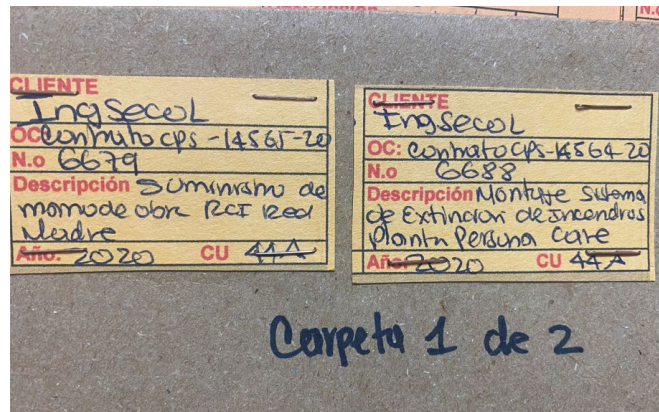 CLIENTE
IngSecol
OC: Contrato cps -14565-20
N.o 6679
Descripción Suministro de
momode obra RCI Red
Madre
Año. 2020 CU 44A
CLIENTE
Ingsecol
OC: Contrato CPS-14564 20
N.o 6688
Descripción Montaje Sistema
de Extincion de Incendios
Planta Persona Care
Año. 2020 CU 44A
Carpeta 1 de 2